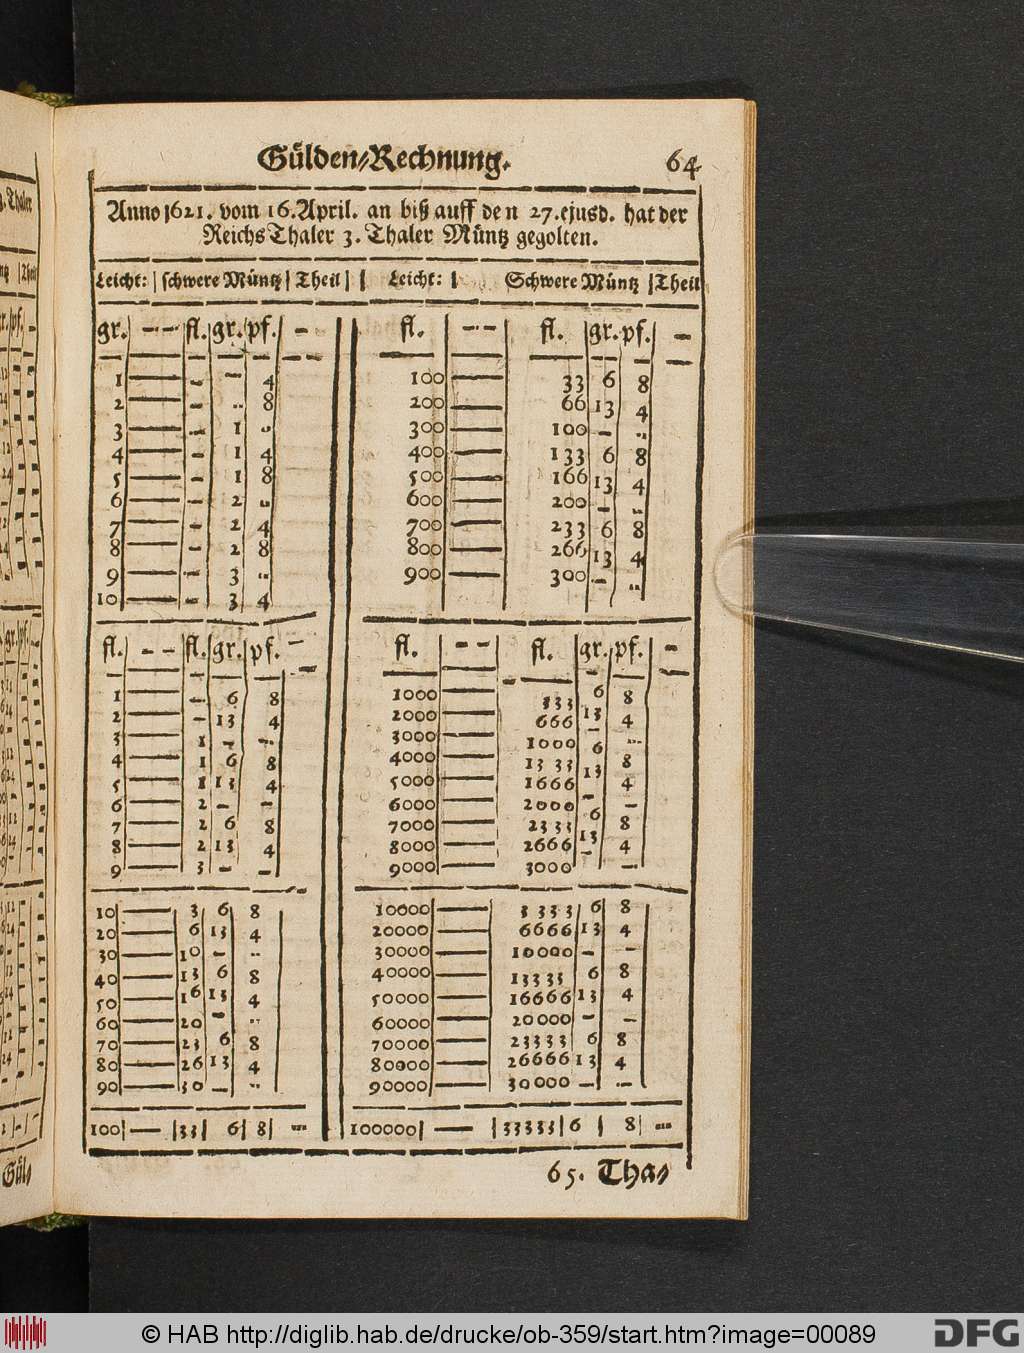 Gülden-Rechnung. 64
Anno 1621. vom 16. April. an biß auff den 27. ejusd. hat der
ReichsThaler 3. Thaler Müntz gegolten.
Leicht: | schwere Müntz | Theil | | Leicht: | Schwere Müntz | Theil
gr. — — fl. gr. pf. —
1 — - — 4
2 — - .. 8
3 — - 1 ..
4 — - 1 4
5 — - 1 8
6 — - 2 ..
7 — - 2 4
8 — - 2 8
9 — - 3 ..
10 — - 3 4
fl. - - fl. gr. pf. —
1 — - 6 8
2 — - 13 4
3 — 1 — ..
4 — 1 6 8
5 — 1 13 4
6 — 2 — —
7 — 2 6 8
8 — 2 13 4
9 — 3 — —
10 — 3 6 8
20 — 6 13 4
30 — 10 — ..
40 — 13 6 8
50 — 16 13 4
60 — 20 — ..
70 — 23 6 8
80 — 26 13 4
90 — 30 — ..
100 | — | 33 | 6 | 8 | ...
fl. — — fl. gr. pf. —
100 — 33 6 8
200 — 66 13 4
300 — 100 — ..
400 — 133 6 8
500 — 166 13 4
600 — 200 — ..
700 — 233 6 8
800 — 266 13 4
900 — 300 — ..
fl. - - fl. gr. pf. —
1000 — 333 6 8
2000 — 666 13 4
3000 — 1000 — ..
4000 — 1333 6 8
5000 — 1666 13 4
6000 — 2000 — —
7000 — 2333 6 8
8000 — 2666 13 4
9000 — 3000 — —
10000 — 3333 6 8
20000 — 6666 13 4
30000 — 10000 — —
40000 — 13333 6 8
50000 — 16666 13 4
60000 — 20000 — —
70000 — 23333 6 8
80000 — 26666 13 4
90000 — 30000 — —
100000 | — | 33333 | 6 | 8 | ...
65. Tha-
Gül-
© HAB http://diglib.hab.de/drucke/ob-359/start.htm?image=00089
DFG